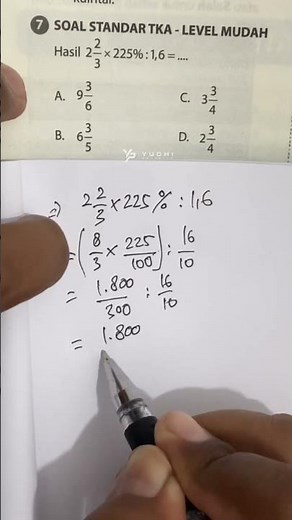 7 SOAL STANDAR TKA - LEVEL MUDAH
Hasil 2 2/3 × 225% : 1,6 = ....
A. 9 3/6
C. 3 3/4
B. 6 3/5
D. 2 3/4
YUDHI
=> 2 2/3 × 225 % : 1,6
= (8/3 × 225/100) : 16/10
= 1.800/300 : 16/10
= 1.800